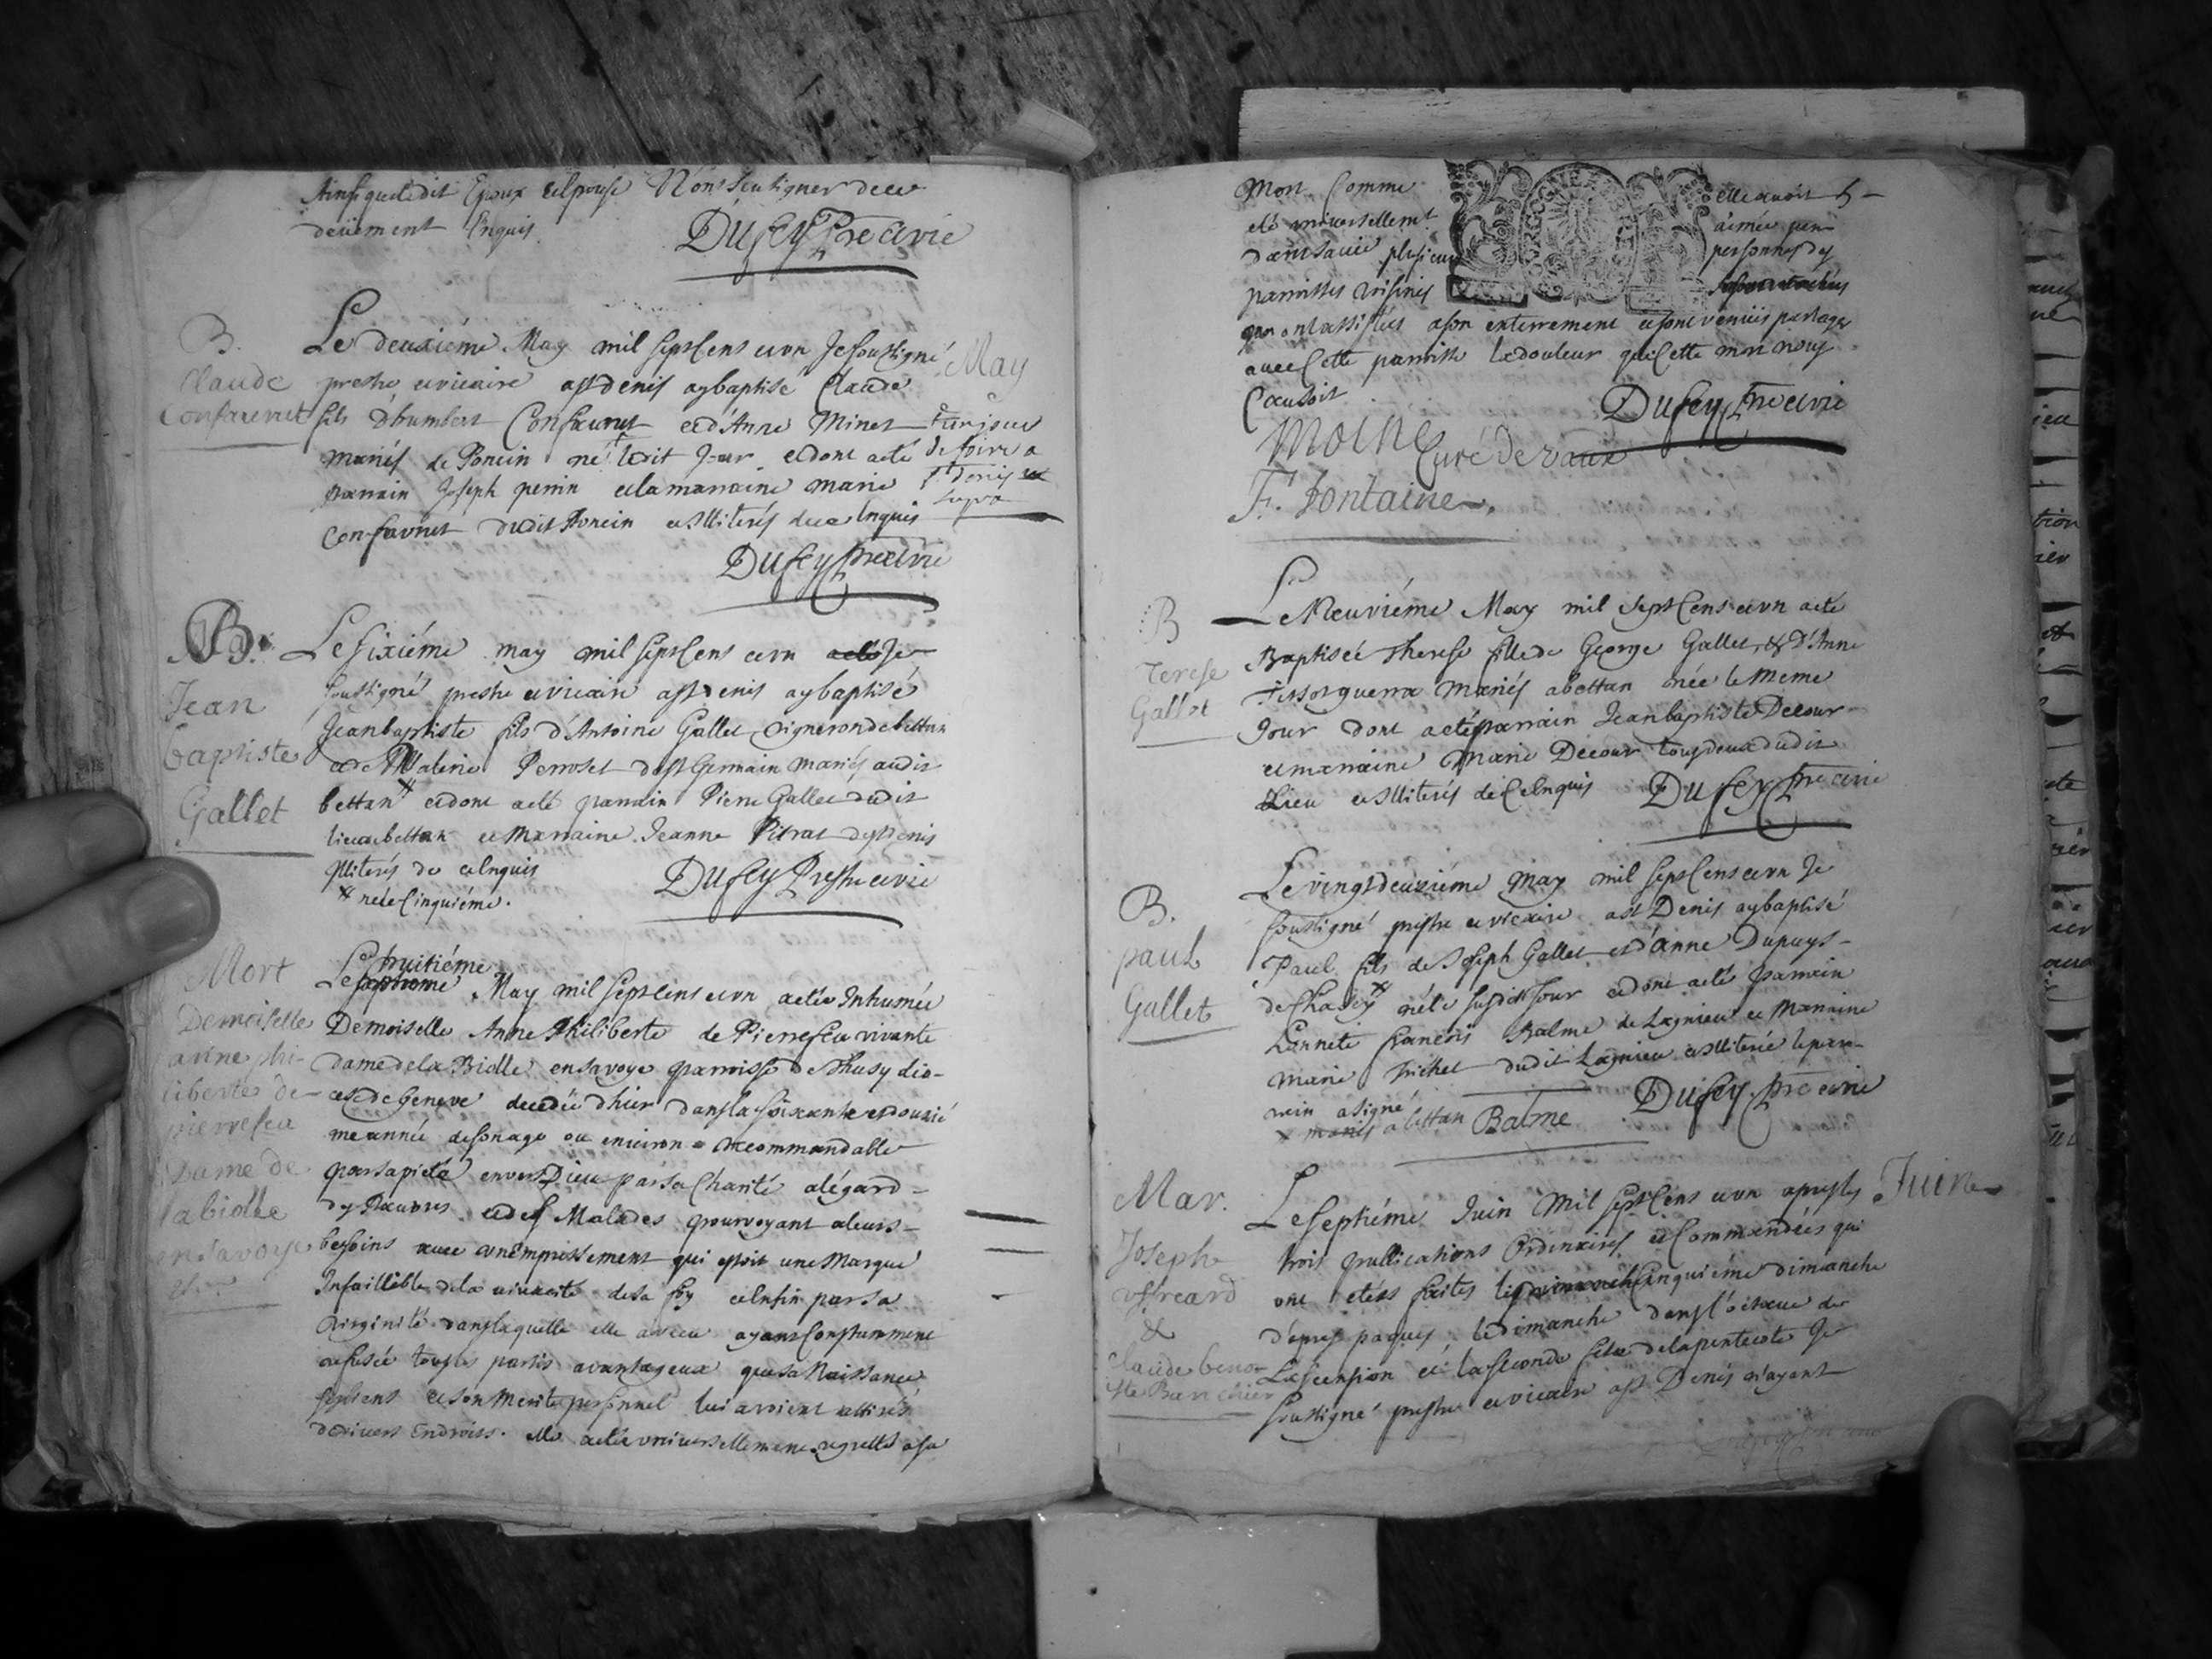 Ainsy que ledit Epoux et Epouse Nont sceu signer de ce
deüement Enquis.
Dufey Pre et vic
May
B.
Claude
Confavret
Le deuxiéme May mil sept Cens et un Je soussigné
prestre et vicaire a st denis ay baptisé Claude
fils d'humbert Confavret et d'Anne Minet
mariés de Poncin né ledit Jour et dont a eté
parrain Joseph perrin et la marraine marie
Confavret dudit Poncin et Illiterés de ce Enquis
un jour
de foire a
st denis
supra
Dufey pre et vic
B.
Jean
baptiste
Gallet
Le sixiéme may mil sept Cens et un a eté Je
soussigné prestre et vicaire a st Denis ay baptisé
Jean baptiste fils d'Antoine Gallet vigneron de bettan
et de Materie Perroset de st Germain mariés audit
bettan et dont a eté parrain Pierre Gallet dudit
lieu de bettan et Marraine Jeanne Pitrat de st Denis
Illiterés de ce Enquis
né le Cinquiéme.
Dufey Prestre et vic
Mort
Demoiselle
anne phi-
liberte de
pierrefeu
Dame de
la biolle
en savoye
Le huitiéme
May mil sept cens et un a eté Inhumée
Demoiselle Anne Philiberte de Pierrefeu vivante
dame de la Biolle en savoye parroisse de Thusy dio-
cese de Geneve decedée d'hier dans la soixante et douzié
me année de son age ou environ recommandable
par sa pieté envers Dieu par sa Charité a légard
des Pauvres et des Malades pourvoyant a leurs
besoins avec un empressement qui estoit une Marque
Infaillible de la vivacité de sa foy et Enfin par sa
virginité dans laquelle elle a vecu ayant Constamment
refusée tous les partis avantageux que sa Naissance
ses biens et son Merite personnel lui avoient attirés
de divers Endroits. elle a eté universellement regrettée a sa
Mort Comme elle avoit
eté universellemt aimée
dans sa vie plusieurs personnes des
parroisses voisines
qui ont assistées a son enterrement et sont venuës partager
avec Cette parroisse la douleur que Cette mort nous
Causoit
Dufey pre et vic
Moine Curé de vaux
F. fontaine
B
Terese
Gallet
Le Neuviéme May mil sept Cens et un a eté
Baptisée Therese fille de George Gallet & d'Anne
Tissot guerra mariés a bettan née le meme
Jour dont a eté parrain Jean baptiste Decour
et marraine Marie Decour tous deux dudit
Lieu et Illiterés de Ce Enquis
Dufey pre et vic
B.
paul
Gallet
Le vingt deuxiéme May mil sept Cens et un Je
soussigné prestre et vicaire a st Denis ay baptisé
Paul fils de Joseph Gallet et d'anne Dupuys
de Chasey né le susdit Jour et dont a eté parrain
honnete francois Balme de Lagnieu et Marraine
Marie Trichet dudit Lagnieu et Illiterée le par-
rein a signé
mariés a bettan
Balme
Dufey pre et vic
Juin
Mar.
Joseph
uffreard
&
Claude beno-
ite Barchier
Le Septiéme Juin Mil sept Cens et un apres les
trois publications Ordinaires et Commandées qui
ont etées faites le Cinquiéme dimanche
d'apres paques le dimanche dans l'octave de
L'ascension et la seconde feste de la pentecote Je
soussigné prestre et vicaire a st Denis n'ayant